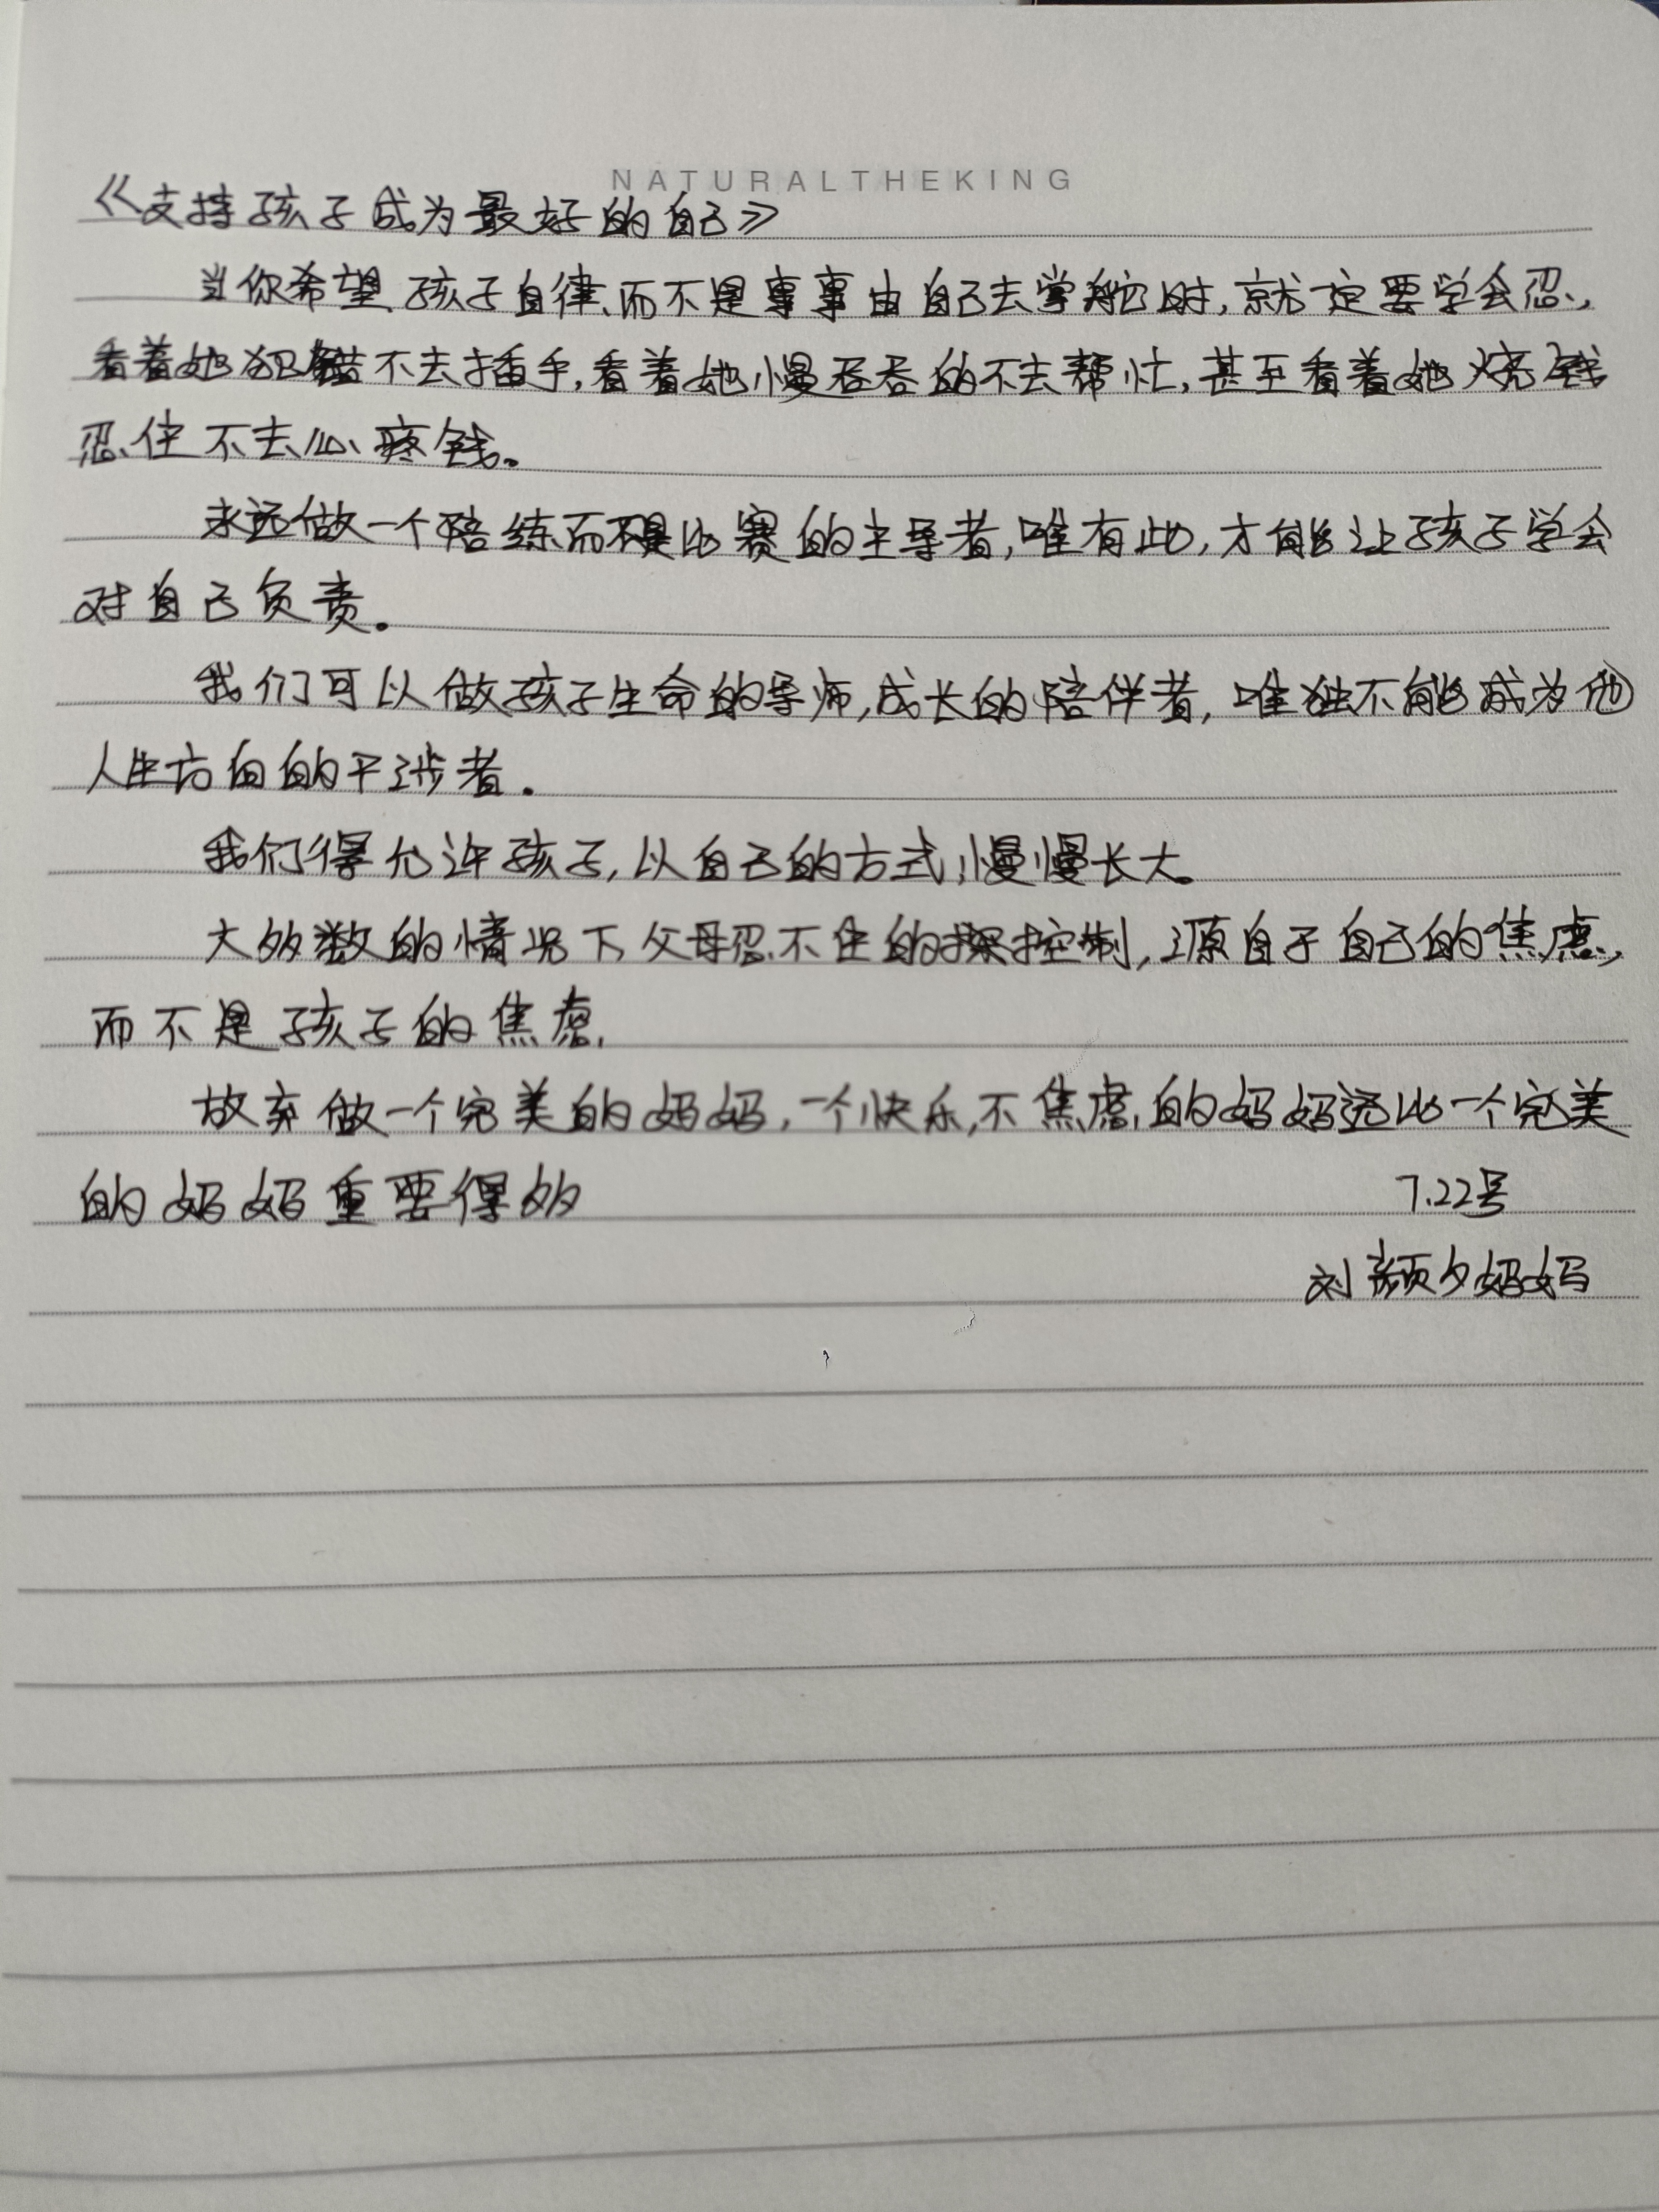 NATURALTHEKING
《支持孩子成为最好的自己》
当你希望孩子自律、而不是事事由自己去掌舵时,就一定要学会忍,
看着她犯错不去插手,看着她慢吞吞的不去帮忙,甚至看着她烧钱
忍住不去心疼钱。
永远做一个陪练而不是比赛的主导者,唯有此,才能让孩子学会
对自己负责。
我们可以做孩子生命的导师,成长的陪伴者,唯独不能成为他
人生方向的干涉者.
我们得允许孩子,以自己的方式,慢慢长大。
大多数的情况下父母忍不住的操控制,源自于自己的焦虑,
而不是孩子的焦虑,
放弃做一个完美的妈妈,一个快乐,不焦虑,的妈妈远比一个完美
的妈妈重要得多
7.22号
刘颜夕妈妈